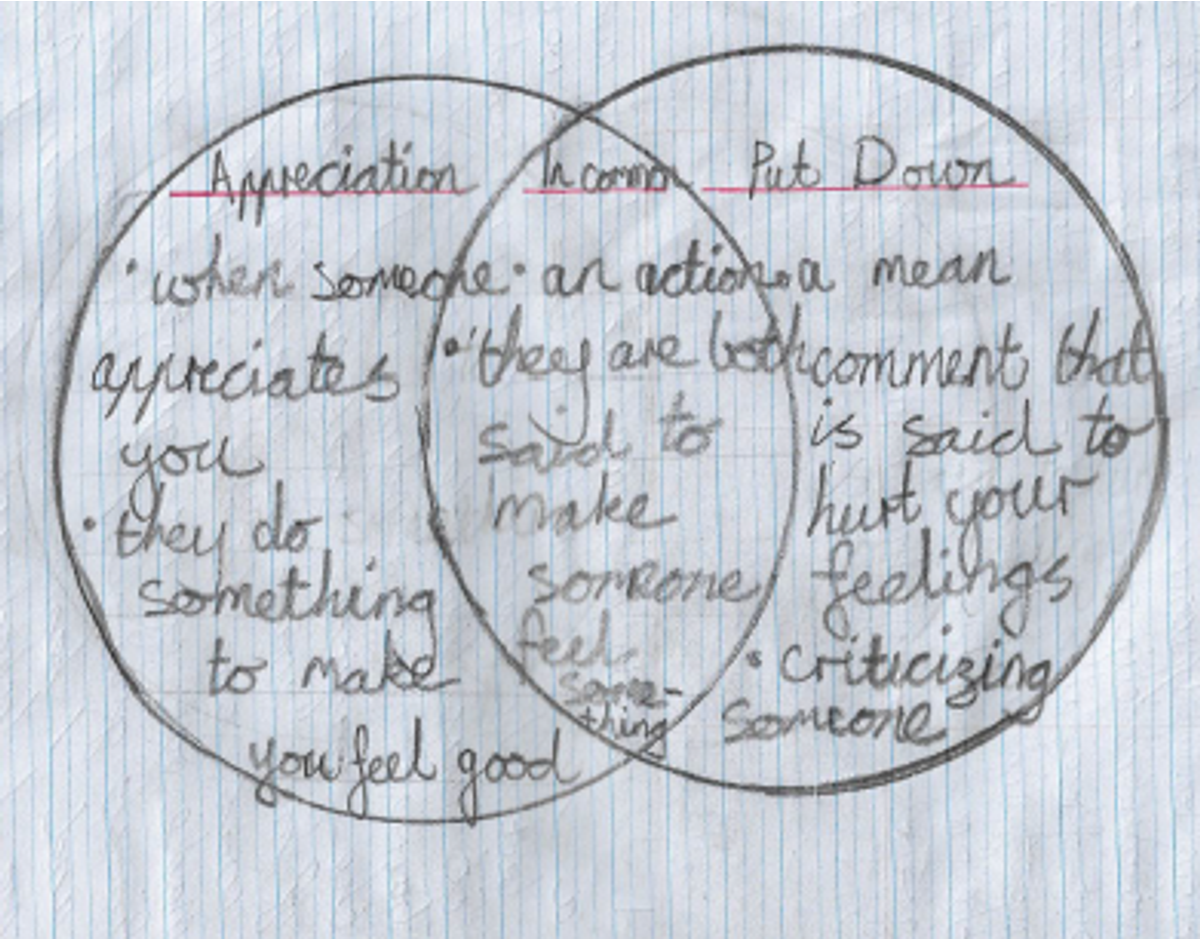 Appreciation
• when someone
appreciates
you
• they do
something
to make
you feel good
In common
• an action
• they are both
said to
make
someone
feel
some-
thing
Put Down
• a mean
comment that
is said to
hurt your
feelings
• criticizing
someone